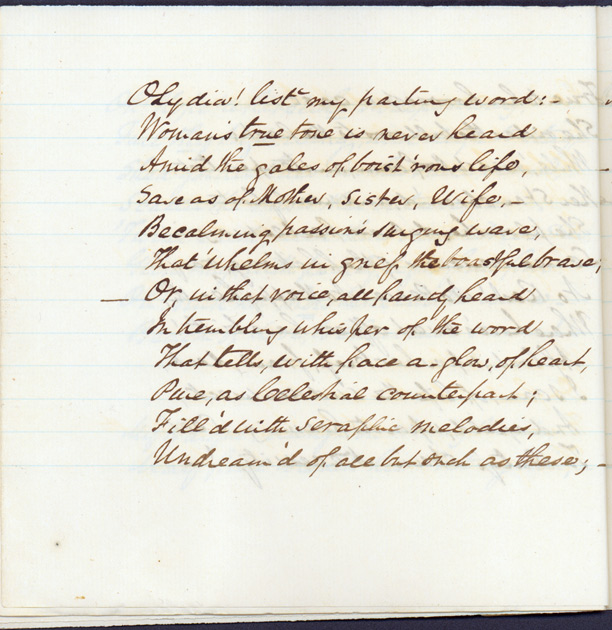 O Lydia! list my parting word:-
Woman's true tone is never heard
Amid the gales of boist'rous life,
Save as of Mother, Sister, Wife,-
Becalming passion's surging wave,
That whelms in grief the boastful brave;
— Or, in that voice, all faintly heard
In trembling whisper of the word
That tells, with face a-glow, of heart,
Pure, as Celestial counterpart;
Fill'd with seraphic melodies,
Undream'd of all but such as these;-